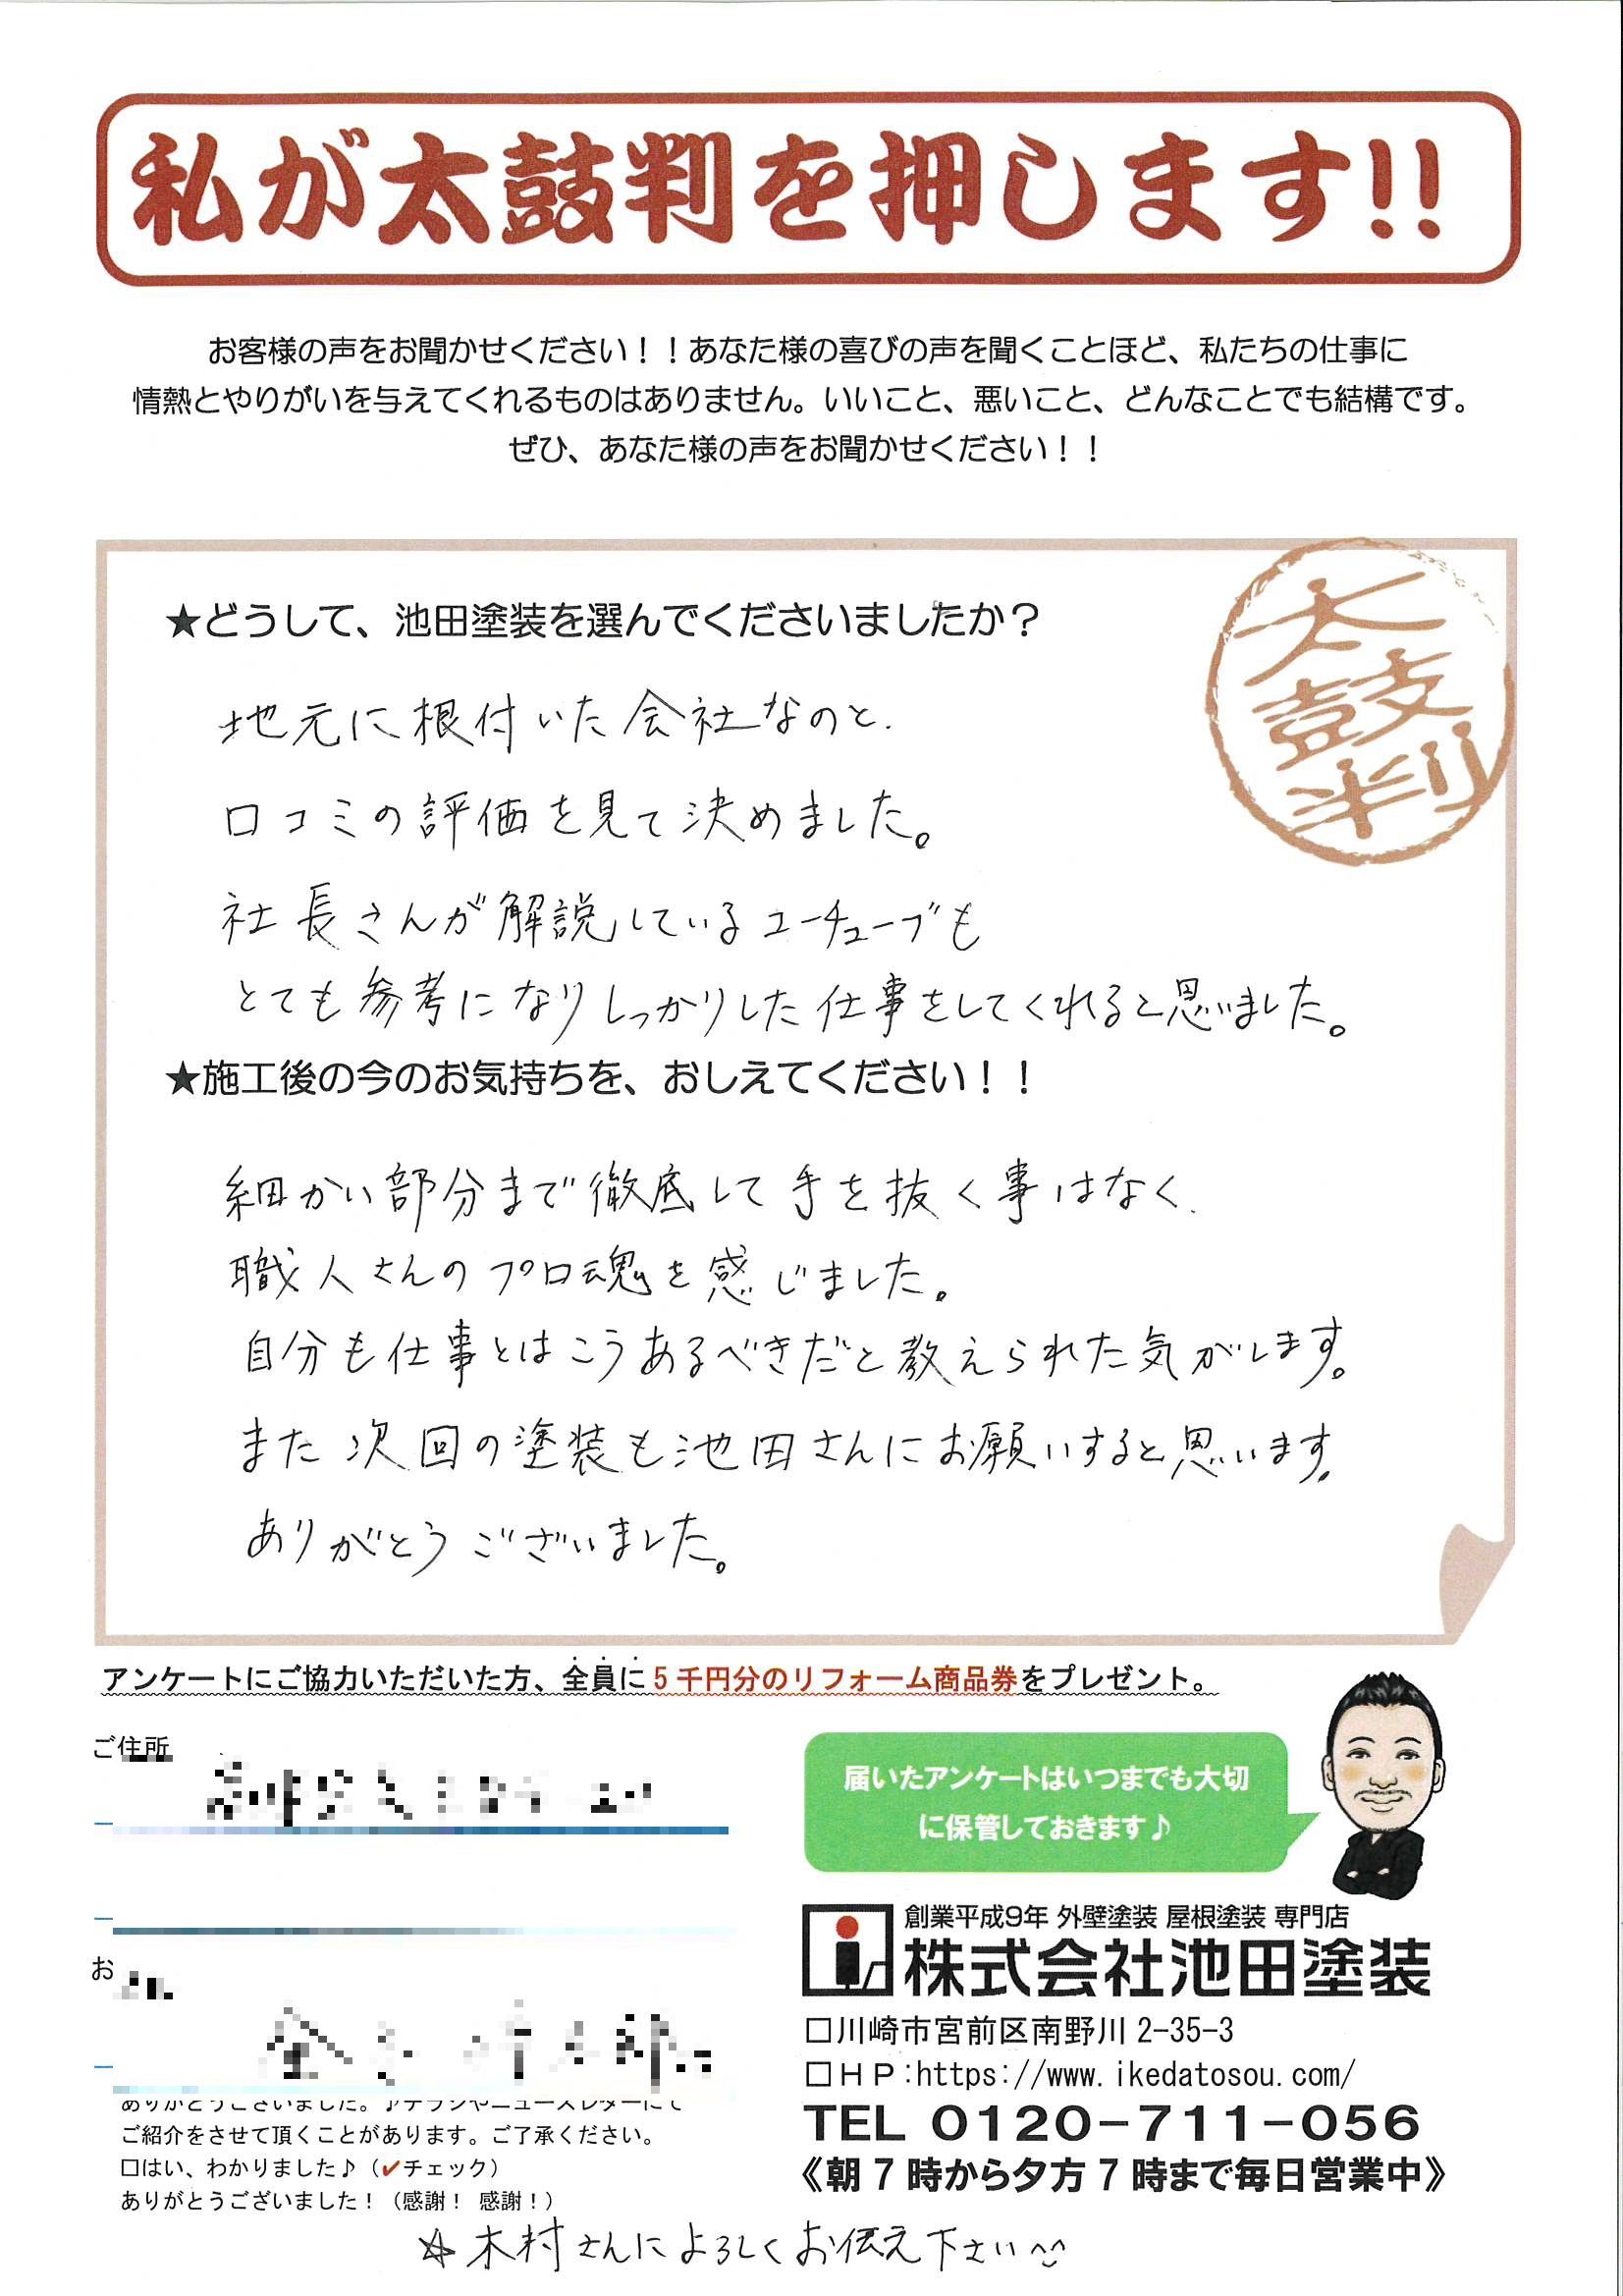 私が太鼓判を押します!!
お客様の声をお聞かせください！！あなた様の喜びの声を聞くことほど、私たちの仕事に
情熱とやりがいを与えてくれるものはありません。いいこと、悪いこと、どんなことでも結構です。
ぜひ、あなた様の声をお聞かせください！！
太鼓判
★どうして、池田塗装を選んでくださいましたか？
地元に根付いた会社なのと、
口コミの評価を見て決めました。
社長さんが解説しているユーチューブも
とても参考になりしっかりした仕事をしてくれると思いました。
★施工後の今のお気持ちを、おしえてください！！
細かい部分まで徹底して手を抜く事はなく、
職人さんのプロ魂を感じました。
自分も仕事とはこうあるべきだと教えられた気がします。
また次回の塗装も池田さんにお願いすると思います。
ありがとうございました。
アンケートにご協力いただいた方、全員に５千円分のリフォーム商品券をプレゼント。
ご住所
お
ありがとうございました。♪チラシやニュースレターにて
ご紹介をさせて頂くことがあります。ご了承ください。
□はい、わかりました♪（✔チェック）
ありがとうございました！（感謝！ 感謝！）
届いたアンケートはいつまでも大切
に保管しておきます♪
創業平成9年 外壁塗装 屋根塗装 専門店
株式会社池田塗装
□川崎市宮前区南野川 2-35-3
□ＨＰ:https://www.ikedatosou.com/
TEL 0120-711-056
《朝７時から夕方７時まで毎日営業中》
☆木村さんによろしくお伝え下さい^^